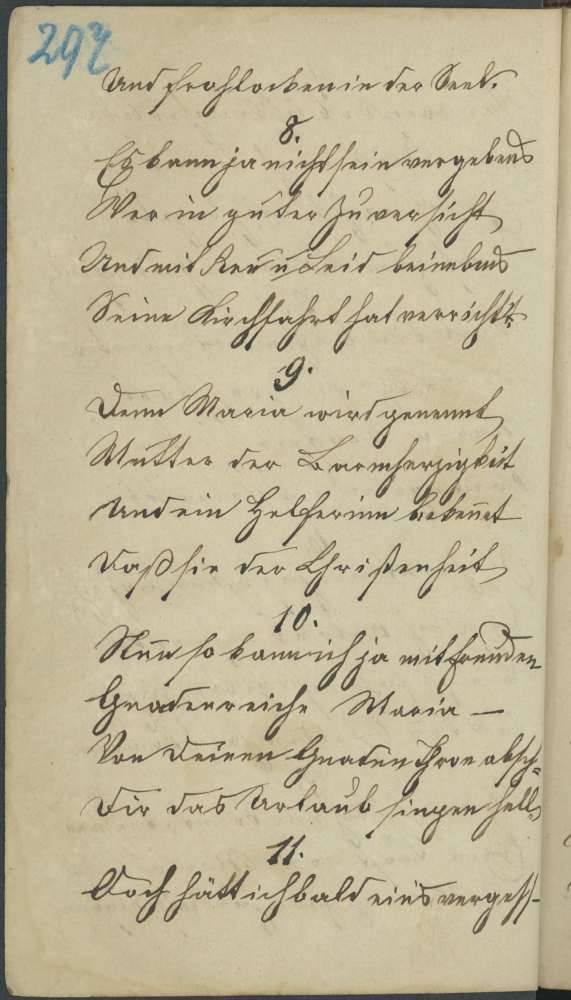 297
Und frohlocken in der Seel.
8.
Es kann ja nicht sein vergebens
Wer in guter Zuversicht
Und mit Reu u Leid beinebens
Seine Kirchfahrt hat verricht't.
9.
Denn Maria wird genennt
Mutter der Barmherzigkeit
Und ein Helferinn bekennt
Daß sie der Christenheit
10.
Nun so kann ich ja mit Freuden
Gnadenreiche Maria —
Von Deinen Gnaden Thron absch=
Dir das Urlaub singen hell
11.
Doch hätt ich bald eins vergess-